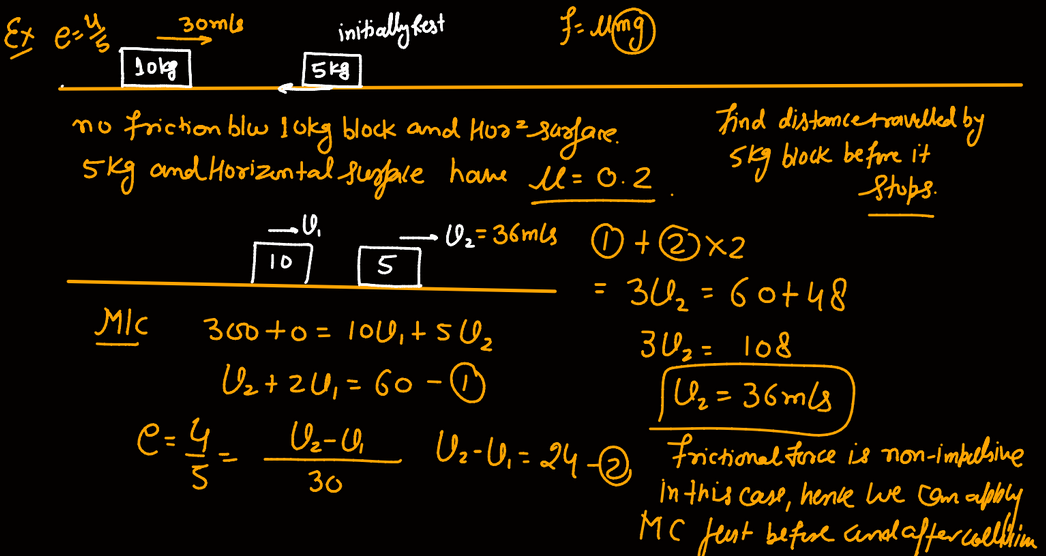 Ex e=4/5 30m/s initially Rest f=μmg
10kg 5kg
no friction b/w 10kg block and Horz surface.
5kg and Horizontal surface have μ=0.2.
find distance travelled by
5kg block before it
stops.
→U₁ →U₂=36m/s
10 5
M/c 300+0=10U₁+5U₂
U₂+2U₁=60-①
e=4/5=(U₂-U₁)/30 U₂-U₁=24-②
①+②×2
=3U₂=60+48
3U₂=108
U₂=36m/s
frictional force is non-impulsive
in this case, hence we can apply
MC just before and after collision